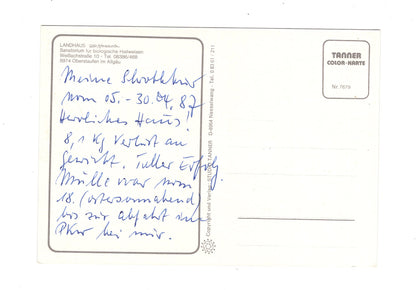 LANDHAUS
Sanatorium für biologische Heilweisen
Weißachstraße 10 · Tel. 08386/488
8974 Oberstaufen im Allgäu
Meine Schrothkur
vom 05. - 30.04.87
Herrliches Haus!
8,1 Kg Verlust an
Gewicht. Toller Erfolg.
war vom
18. (Ostersonnabend)
bis zur Abfahrt im
PKW bei mir.
Copyright und Verlag: TANNER D-8964 Nesselwang · Tel. 0 83 61 /
TANNER
COLOR-KARTE
Nr. 7675